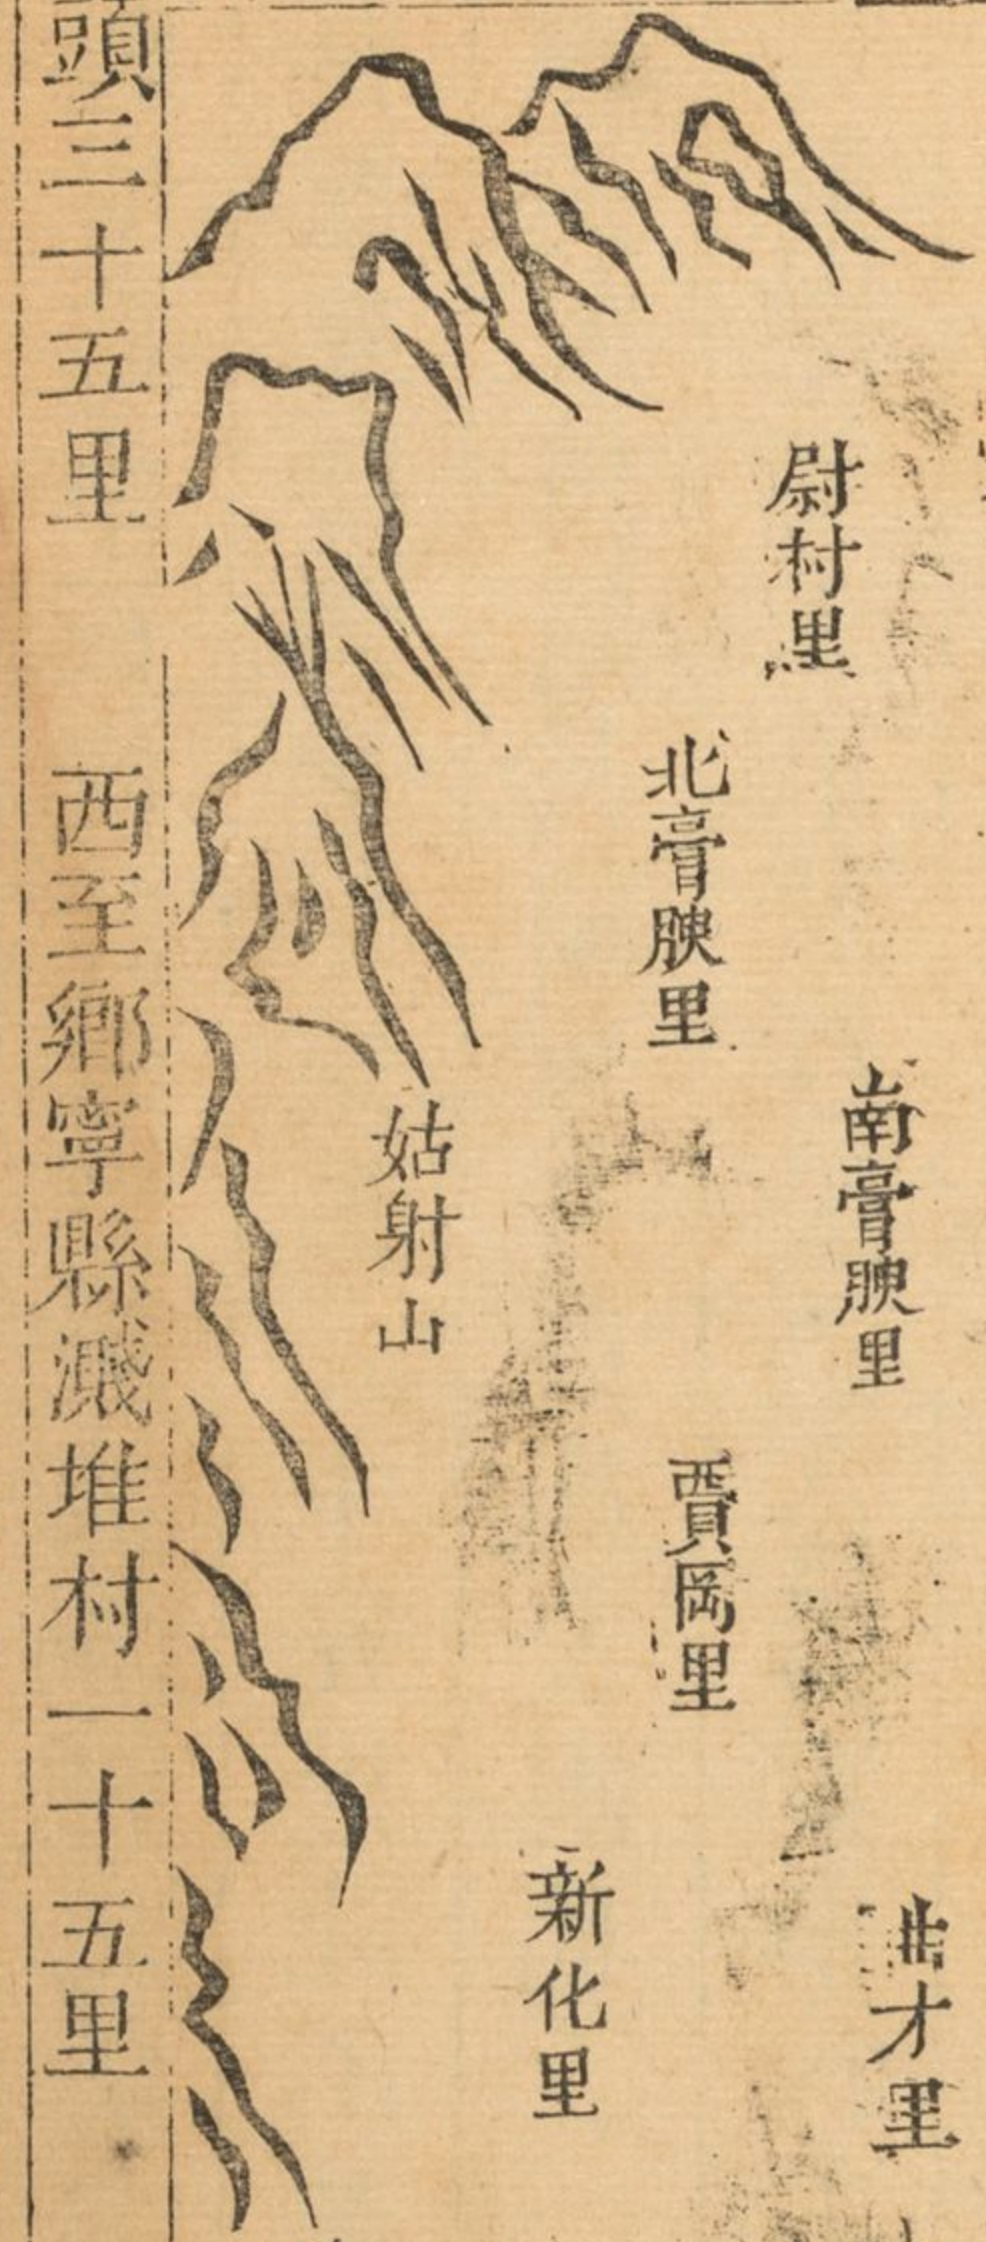 尉村里
南膏腴里
才里
北膏腴里
賈岡里
新化里
姑射山
頭三十五里　西至鄉寧縣濺堆村一十五里